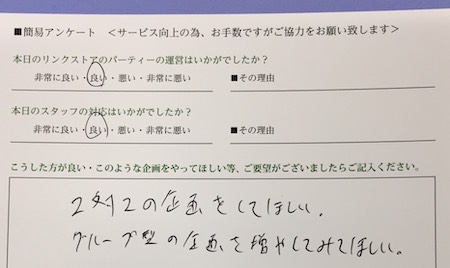 ■簡易アンケート　＜サービス向上の為、お手数ですがご協力をお願い致します＞
本日のリンクストアのパーティーの運営はいかがでしたか？
非常に良い・良い・悪い・非常に悪い　■その理由
本日のスタッフの対応はいかがでしたか？
非常に良い・良い・悪い・非常に悪い　■その理由
こうした方が良い・このような企画をやってほしい等、ご要望がございましたらご記入ください。
2対2の企画をしてほしい。
グループ型の企画を増やしてみてほしい。